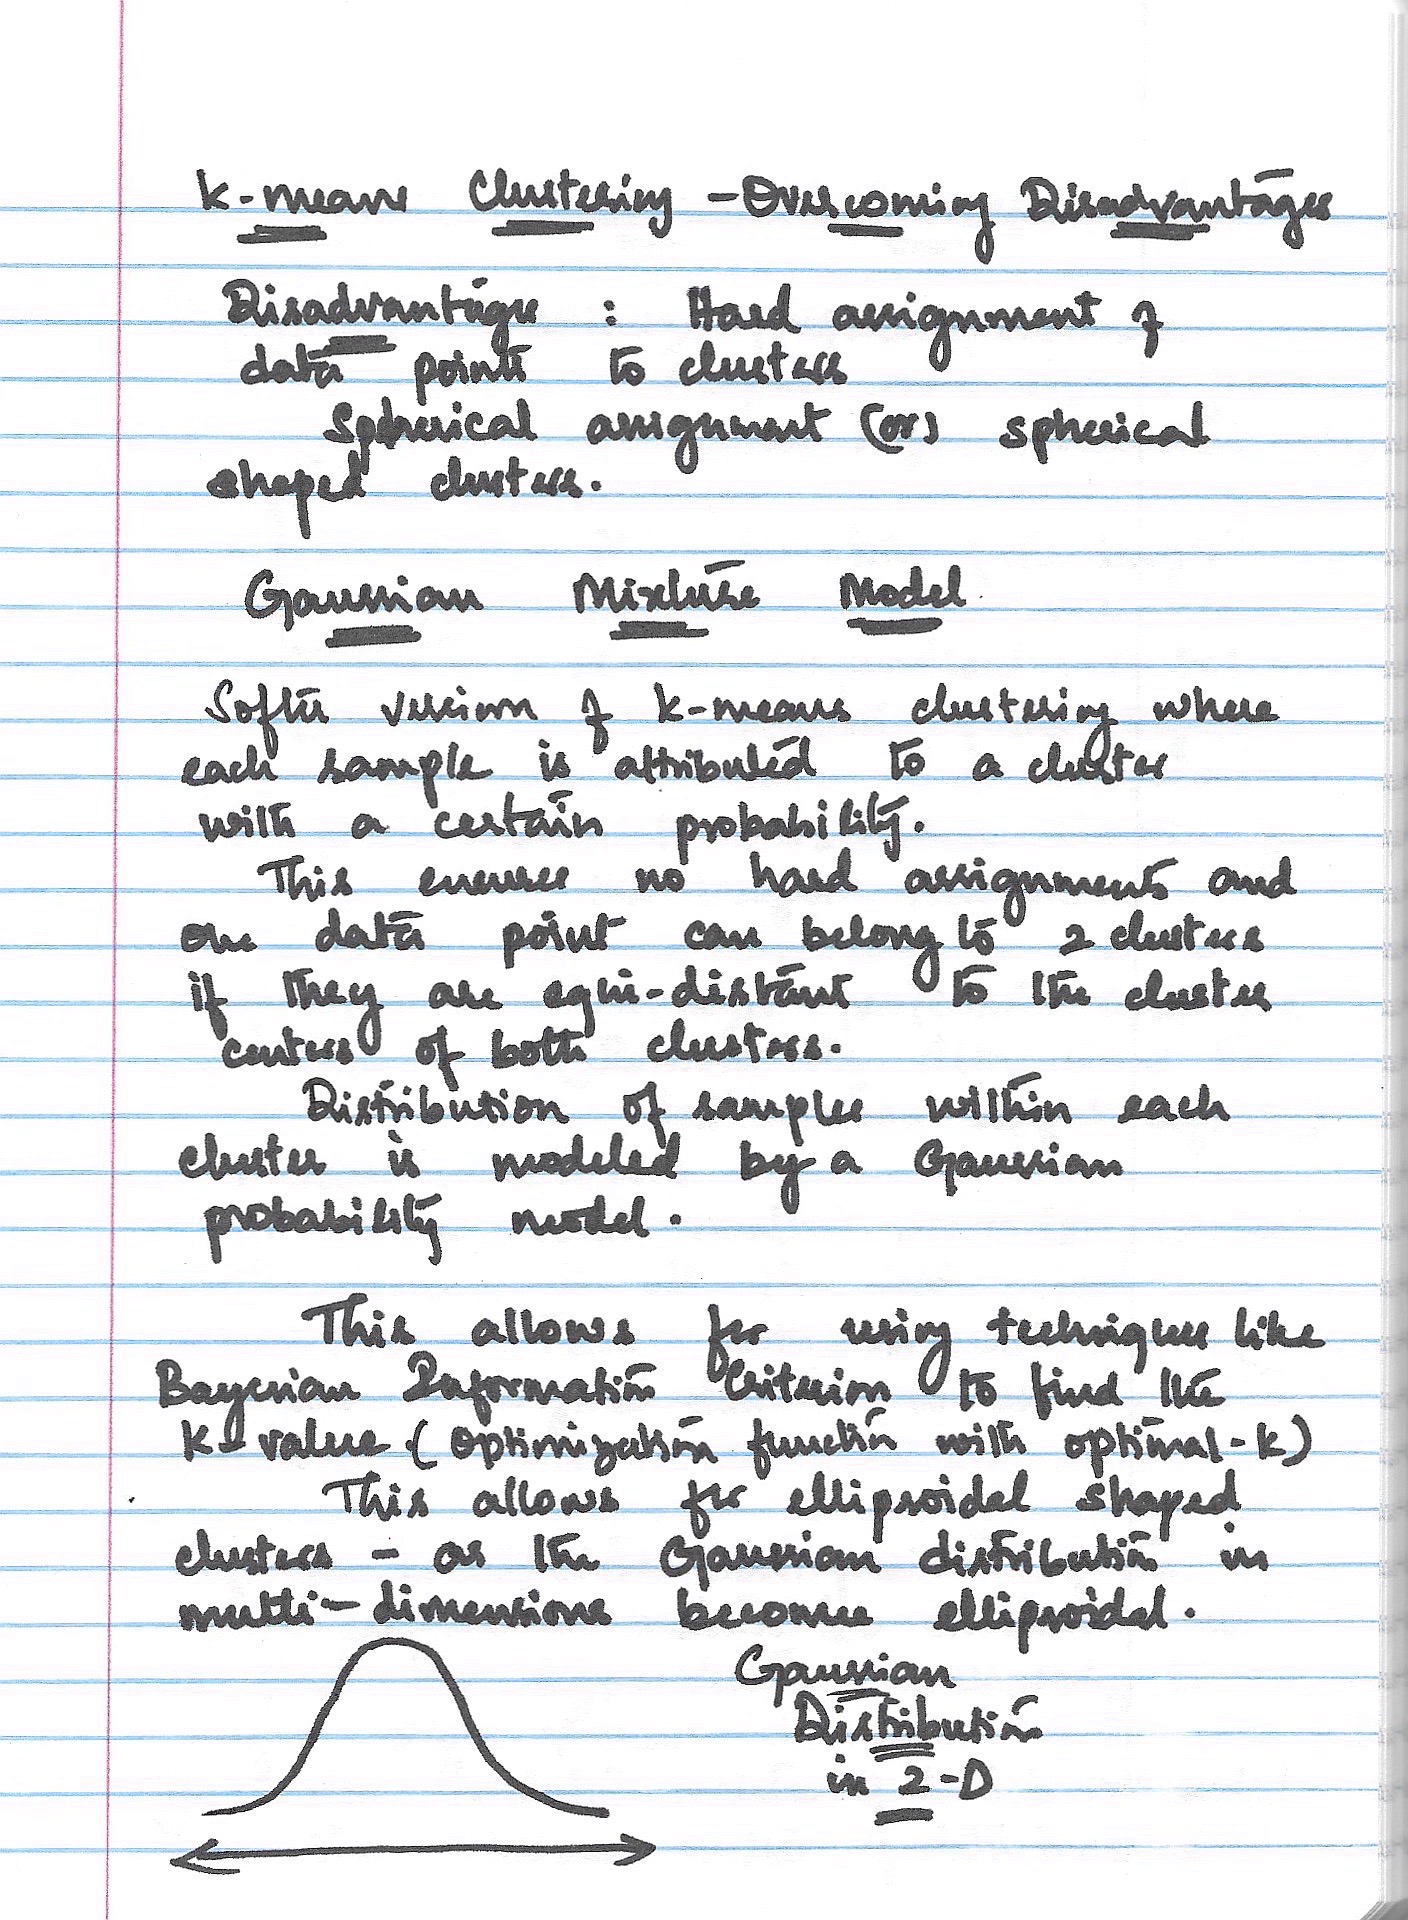 k-means Clustering - Overcoming Disadvantages
Disadvantages : Hard assignment of
data points to clusters
Spherical assignment (or) spherical
shaped clusters.
Gaussian Mixture Model
Softer version of k-means clustering where
each sample is attributed to a cluster
with a certain probability.
This ensures no hard assignments and
one data point can belong to 2 clusters
if they are equi-distant to the cluster
centers of both clusters.
Distribution of samples within each
cluster is modeled by a Gaussian
probability model.
This allows for using techniques like
Bayesian Information Criterion to find the
k-value (Optimization function with optimal-k)
This allows for ellipsoidal shaped
clusters - as the Gaussian distribution in
multi-dimensions becomes ellipsoidal.
Gaussian
Distribution
in 2-D